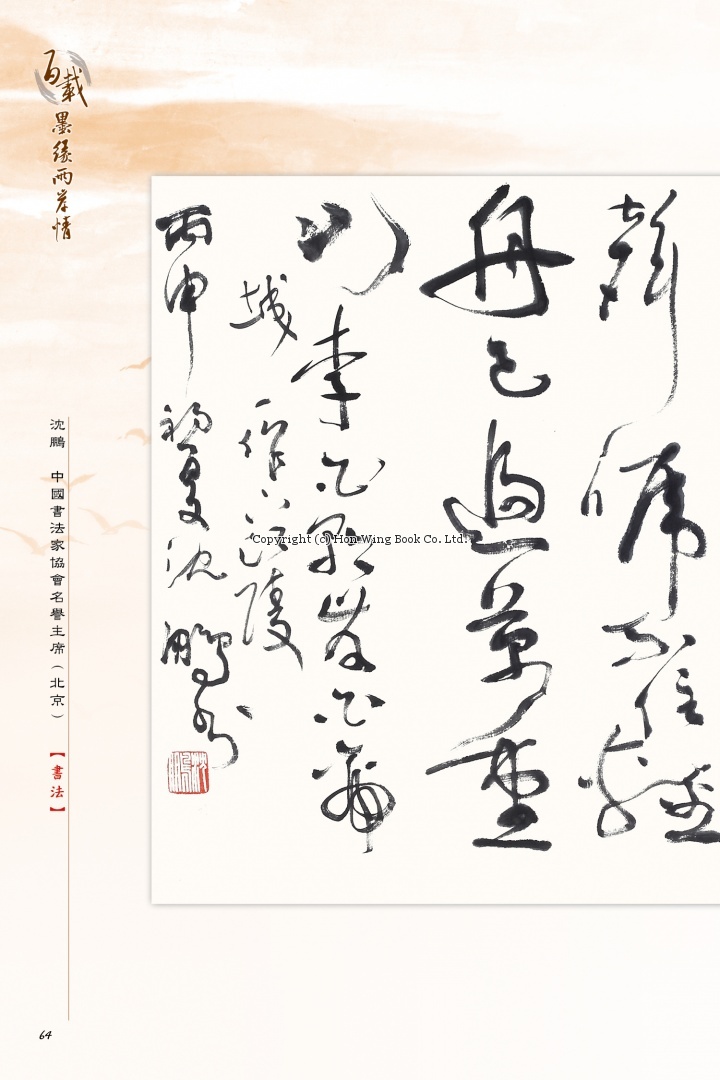 百載墨緣兩岸情
聲啼不住輕
舟已過萬重
山 李白早發白帝
城 一作下江陵
丙申初夏沈鵬
沈鵬 中國書法家協會名譽主席（北京）
【書法】
Copyright (c) Hon Wing Book Co. Ltd.
64